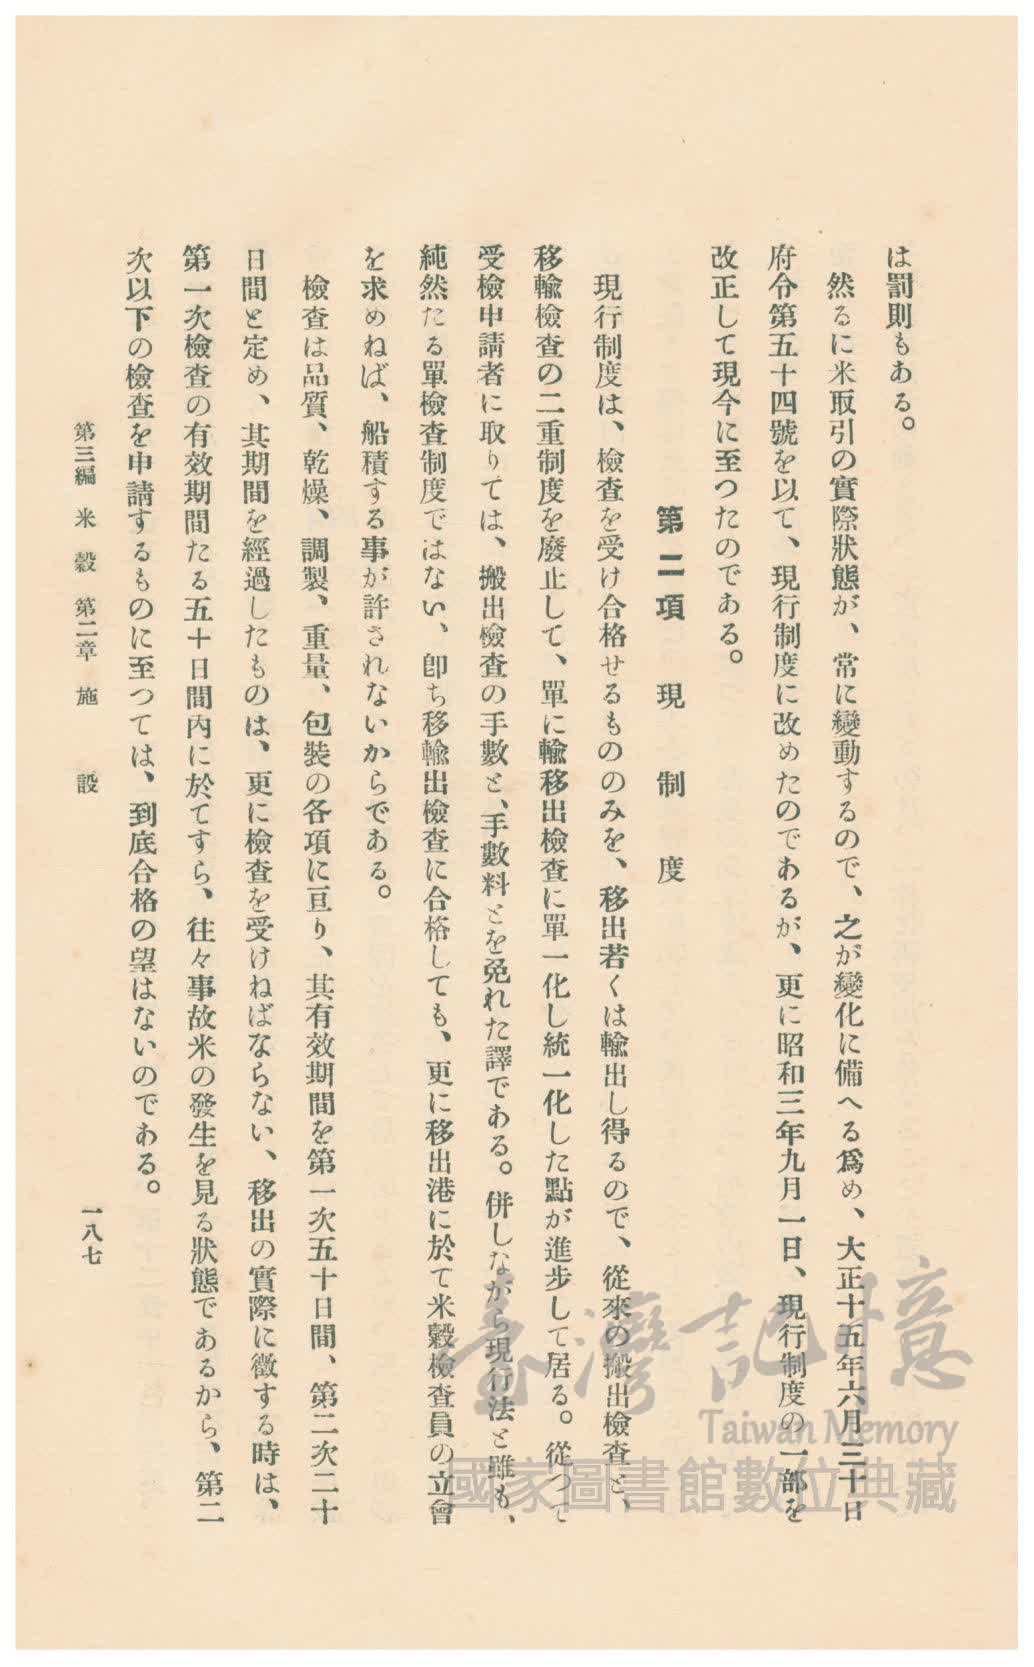 は罰則もある。
然るに米取引の實際狀態が、常に變動するので、之が變化に備へる爲め、大正十五年六月三十日
府令第五十四號を以て、現行制度に改めたのであるが、更に昭和三年九月一日、現行制度の一部を
改正して現今に至つたのである。
第二項 現制度
現行制度は、檢査を受け合格せるもののみを、移出若くは輸出し得るので、從來の搬出檢査と、
移輸檢査の二重制度を廢止して、單に輸移出檢査に單一化し統一化した點が進步して居る。從つて
受檢申請者に取りては、搬出檢査の手數と、手數料とを免れた譯である。併しながら現行法と雖も、
純然たる單檢査制度ではない、卽ち移輸出檢査に合格しても、更に移出港に於て米穀檢査員の立會
を求めねば、船積する事が許されないからである。
檢査は品質、乾燥、調製、重量、包裝の各項に亘り、其有效期間を第一次五十日間、第二次二十
日間と定め、其期間を經過したものは、更に檢査を受けねばならない、移出の實際に徵する時は、
第一次檢査の有效期間たる五十日間內に於てすら、往々事故米の發生を見る狀態であるから、第二
次以下の檢査を申請するものに至つては、到底合格の望はないのである。
第三編 米穀 第二章 施設
一八七
臺灣記憶
Taiwan Memory
國家圖書館數位典藏